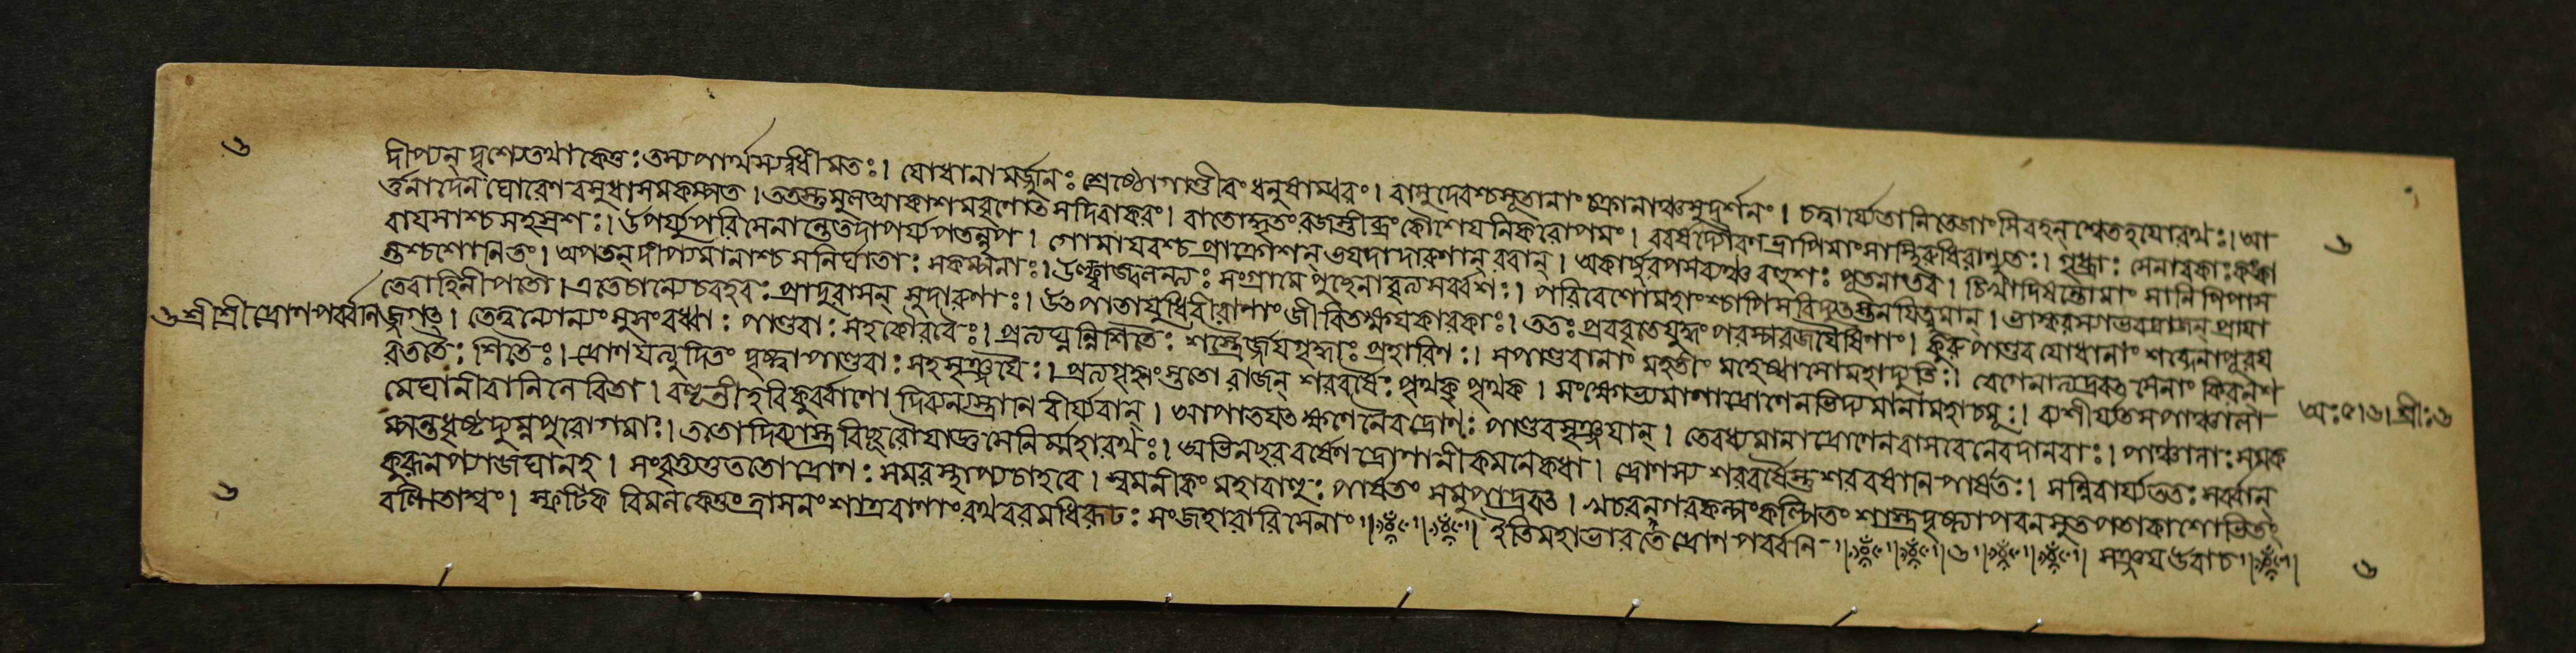 ৬
দীপ্যন্ দৃশ্যেতথাকেতুঃ তস্যপার্থস্যধীমতঃ। যোধানামর্জুনঃ শ্রেষ্ঠোগাণ্ডীবং ধনুষাম্বরং। বাসুদেবশ্চভূতানাং চক্রানাঞ্চসুদর্শনং। চত্বার্য্যেতানিতেজাংসিবহন্ শ্বেতহযোরথঃ। আ
র্ত্তনাদেন ঘোরেণ বসুধাসমকম্পত। ততস্তুমুলআকাশমবৃণোত সদিবাকরং। বাতোদ্ধূতং রজস্তীব্রং কৌশেযনিকরোপমং। ববর্ষদ্যৌরনভ্রাপিমাংসাস্থিরুধিরাণ্যুত। গৃধ্রাঃ শেনাবকাঃকঙ্কা
বাযসাশ্চসহস্রশঃ। উপর্য্যুপরিসেনান্তেতদাপর্য্যপতন্নৃপ। গোমাযবশ্চ প্রাক্রোশন্ ভযদাদারুণান্ রবান্। অকার্ষুরপসব্যঞ্চ বহুশঃ পৃতনাংতব। চিখাদিষন্তোমাংসানিপিপাস
ন্তশ্চশোনিতং। অপতন্ দীপ্যমানাশ্চ সনির্ঘাতাঃ সকম্পনাঃ। উল্কাজ্বলনলঃ সংগ্রামে পুচ্ছেনাবৃত্যসর্ব্বশঃ। পরিবেশোমহাংশ্চাপিসবিদ্যুত্স্তনযিত্নুমান্। ভাস্করস্যাভবদ্রাজন্ প্রযা
তেবাহিনীপতৌ। এতেচান্যেচবহবঃ প্রাদুরাসন্ সুদারুণাঃ। উত্পাতাযুধিবীরাণাং জীবিতক্ষযকারকাঃ। ততঃ প্রববৃতেযুদ্ধং পরস্পরজযৈষিণাং। কুরুপাণ্ডব যোধানাং শব্দেনাপূরয
৬ শ্রীশ্রীদ্রোণপর্ব্বনি
জ্জগত্। তেত্বন্যোন্যং সুসংরব্ধাঃ পাণ্ডবাঃ সহকৌরবৈঃ। প্রত্যঘ্নন্নিশিতৈঃ শস্ত্রৈর্জ্জযগৃদ্ধাঃ প্রহারিণঃ। সপাণ্ডবানাং মহতীং মহেষ্বাসোমহাদ্যুতিঃ। বেগেনাভ্যদ্রবত্ সেনাং কিরন্শ
রশতৈঃ শিতৈঃ। দ্রোণমভ্যুদিতং দৃষ্ট্বাপাণ্ডবাঃ সহসৃঞ্জযৈঃ। প্রত্যগৃহ্নংস্ততো রাজন্ শরবর্ষৈঃ পৃথক্ পৃথক্। সংক্ষোভ্যমাণাদ্রোণেনভিদ্যমানামহাচমূঃ। ব্যশীর্যতসপাঞ্চালা
মেঘানীবানিলেরিতা। বহূনীহ বিকুর্ব্বাণো দিব্যন্যস্ত্রানি বীর্য্যবান্। আপাতযত্ ক্ষণেনৈব দ্রোণঃ পাণ্ডবসৃঞ্জযান্। তেবধ্যমানাদ্রোণেনবাসবেনেবদানবাঃ। পাঞ্চালাঃসমক
অঃ৫।৬। শ্রীঃ৬
ম্পন্তধৃষ্টদ্যুম্নপুরোগমাঃ। ততোদিব্যাস্ত্রবিচ্ছূরোযাজ্ঞসেনির্ম্মহারথঃ। অভিনচ্ছরবর্ষেণ দ্রোণানীকমনেকধা। দ্রোণস্য শরবর্ষৈস্তু শরবর্ষানি পার্ষতঃ। সন্নিবার্য্যততঃ সর্ব্বান্
কুরূনপ্যাজঘানহ। সংবৃত্যতুততোদ্রোণঃ সমরস্থাপ্যচাহবে। স্বমনীকং মহাবাহুঃ পার্ষতং সমুপাদ্রবত্। খচরনগরকল্পংকল্পিতং শাস্ত্রদৃষ্ট্যাপবনসুতপতাকাশোভিতং
বল্গিতাশ্বং। স্ফটিক বিমলকেতুংত্রাসনং শাত্রবাণাংরথবরমধিরূঢঃ সংজহারারিসেনাং॥ ॥ ইতিমহাভারতে দ্রোণপর্ব্বনি॥ ॥৬॥ ॥ সঞ্জয উবাচ॥
৬
৬
৬